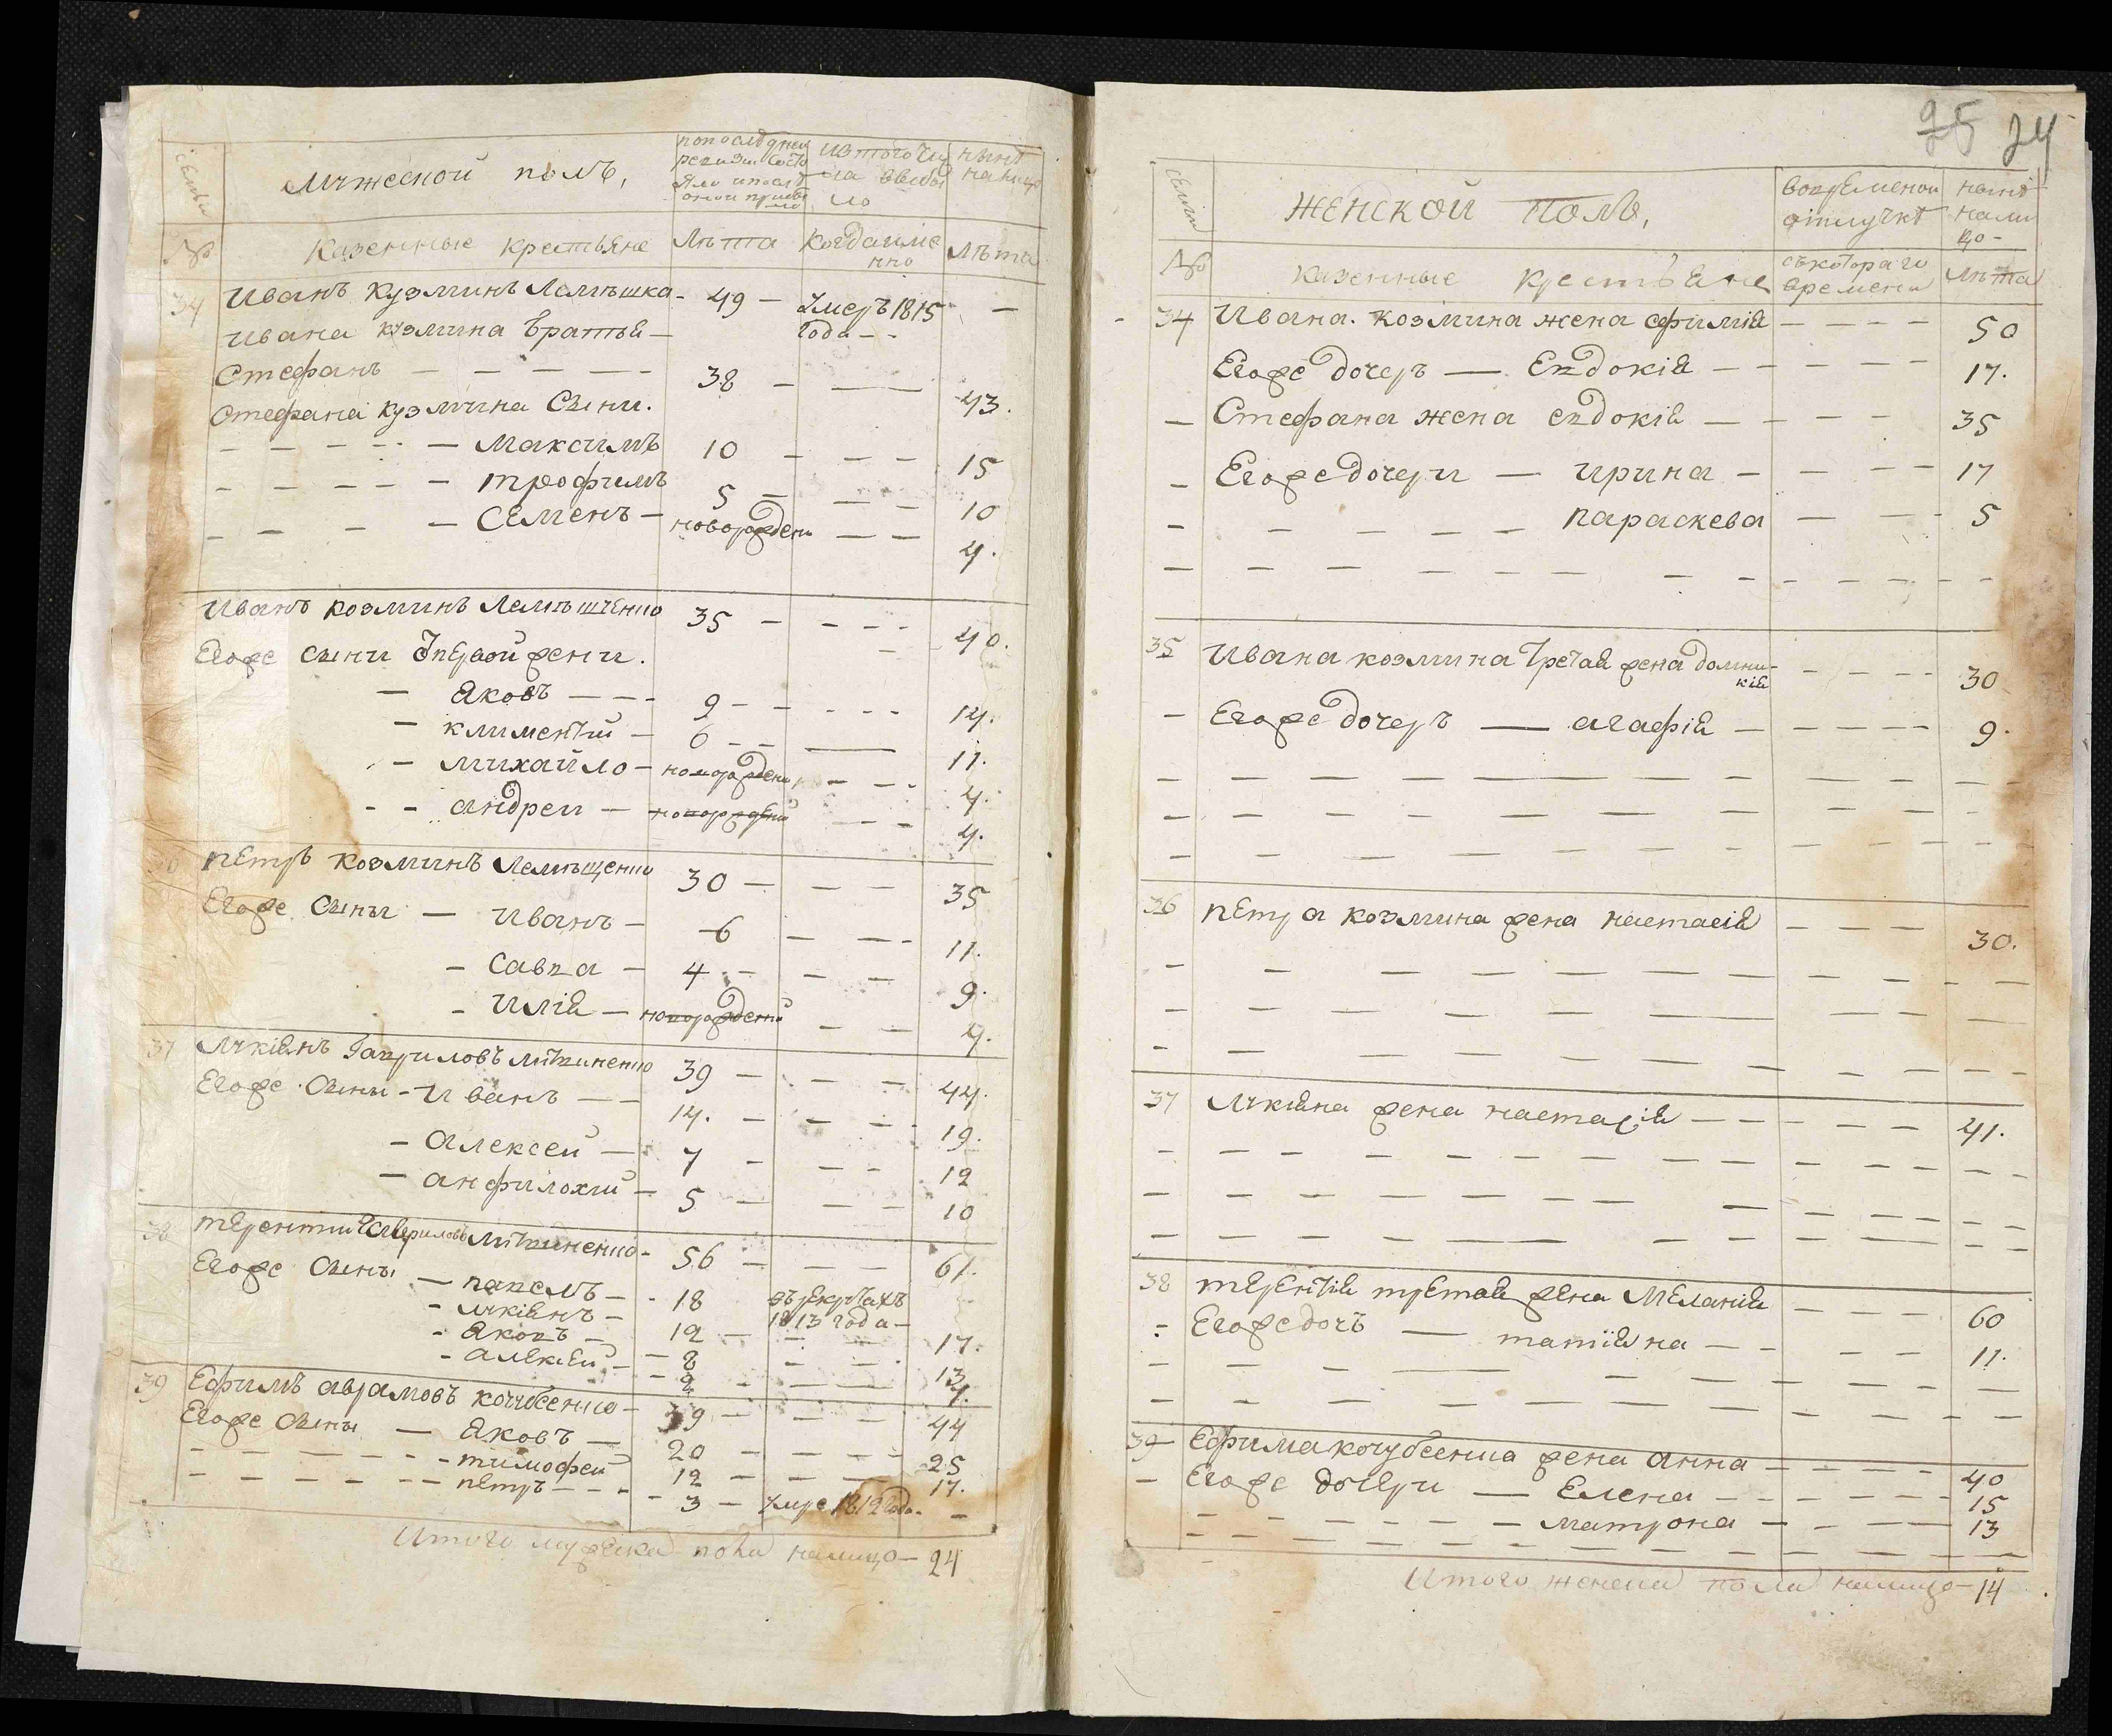 семьи
Мужеской полъ,
попоследнеи
ревизии состо
яло ипосле
оной прибы
ло
изтого чи
сла выбы
ло
нынѣ
налицо
№
казенные крестьяне
лѣта
когдаиме
нно
лѣта
34 Иванъ кузминъ Лемѣшка - 49 - умеръ 1815 -
года - -
ивана кузмина братья -
Стефанъ - - - - - 38 - - 43.
Стефана кузмина Сыни.
- - - - - Максимъ 10 - - - 15
- - - - - трофимъ 5 - - - 10
- - - - Семенъ - новорожден - - 4.
Иванъ козминъ Лемѣшенко 35 - - - - 40.
Егоже сыни ѿпервой жени. -
- Яковъ - - - 9 - - - - - 14.
- климентий - 6 - - - 11.
- михайло - новорожден - - - 4.
- - андреи - новорожденй - - - 4.
петръ козминъ Лемѣщенко 30 - - - 35
Егоже Сыны - Иванъ - 6 - - - 11.
- Савва - 4 - - - 9.
- Илія - новорожденй - - 4.
37 Лукіянъ Гавриловъ литвиненко 39 - - - 44.
Егоже Сыны - Иванъ - - 14. - - - 19.
- Алексей - 7 - - - 12
- анфилохий - 5 - - - 10
38 терентий Гавриловъ литвиненко - 56 - - - 61.
Егоже Сыны - павелъ - - 18 въ рекрутахъ
1813 года -
- лукіянъ - 12 - - - 17.
- Яковъ - - 8 - - 13
- алексей - - 2 - - 7.
39 Ефимъ аврамовъ кочубеенко - 39 - - - 44
Егоже Сыны - Яковъ - 20 - - - - 25
- - - - - - тимофей 12 - - - 17.
- - - - - - петръ - - - - 3 - умре 1812 года. -
Итого мужеска пола налицо - 24
25 24
семьи
женской полъ,
вовременои
отлучкѣ
нынѣ
нали
цо -
№
казенные крестьяне
съкотораго
времени
лѣта
- 34 Ивана. козмина жена ефимія - - - - 50
Егоже дочеръ - Евдокія - - - - - 17.
- Стефана жена евдокія - - - - 35
- Егоже дочери - ирина - - - - 17
- - - - - - параскева - - - 5
35 Ивана козмина третая жена домни-
кія - - - - 30
- Егоже дочеръ - агафія - - - - - 9.
36 петра козмина жена настасія - - - 30.
37 Лукіяна жена настасія - - - - - - 41.
38 терентія третая жена Меланія - - - 60
- Егоже дочъ - татіяна - - - - 11.
39 Ефима кочубеенка жена анна - - - - - 40
- Егоже дочери - Елена - - - - - - 15
- - - - - - матрона - - - 13
Итого женска пола налицо - 14